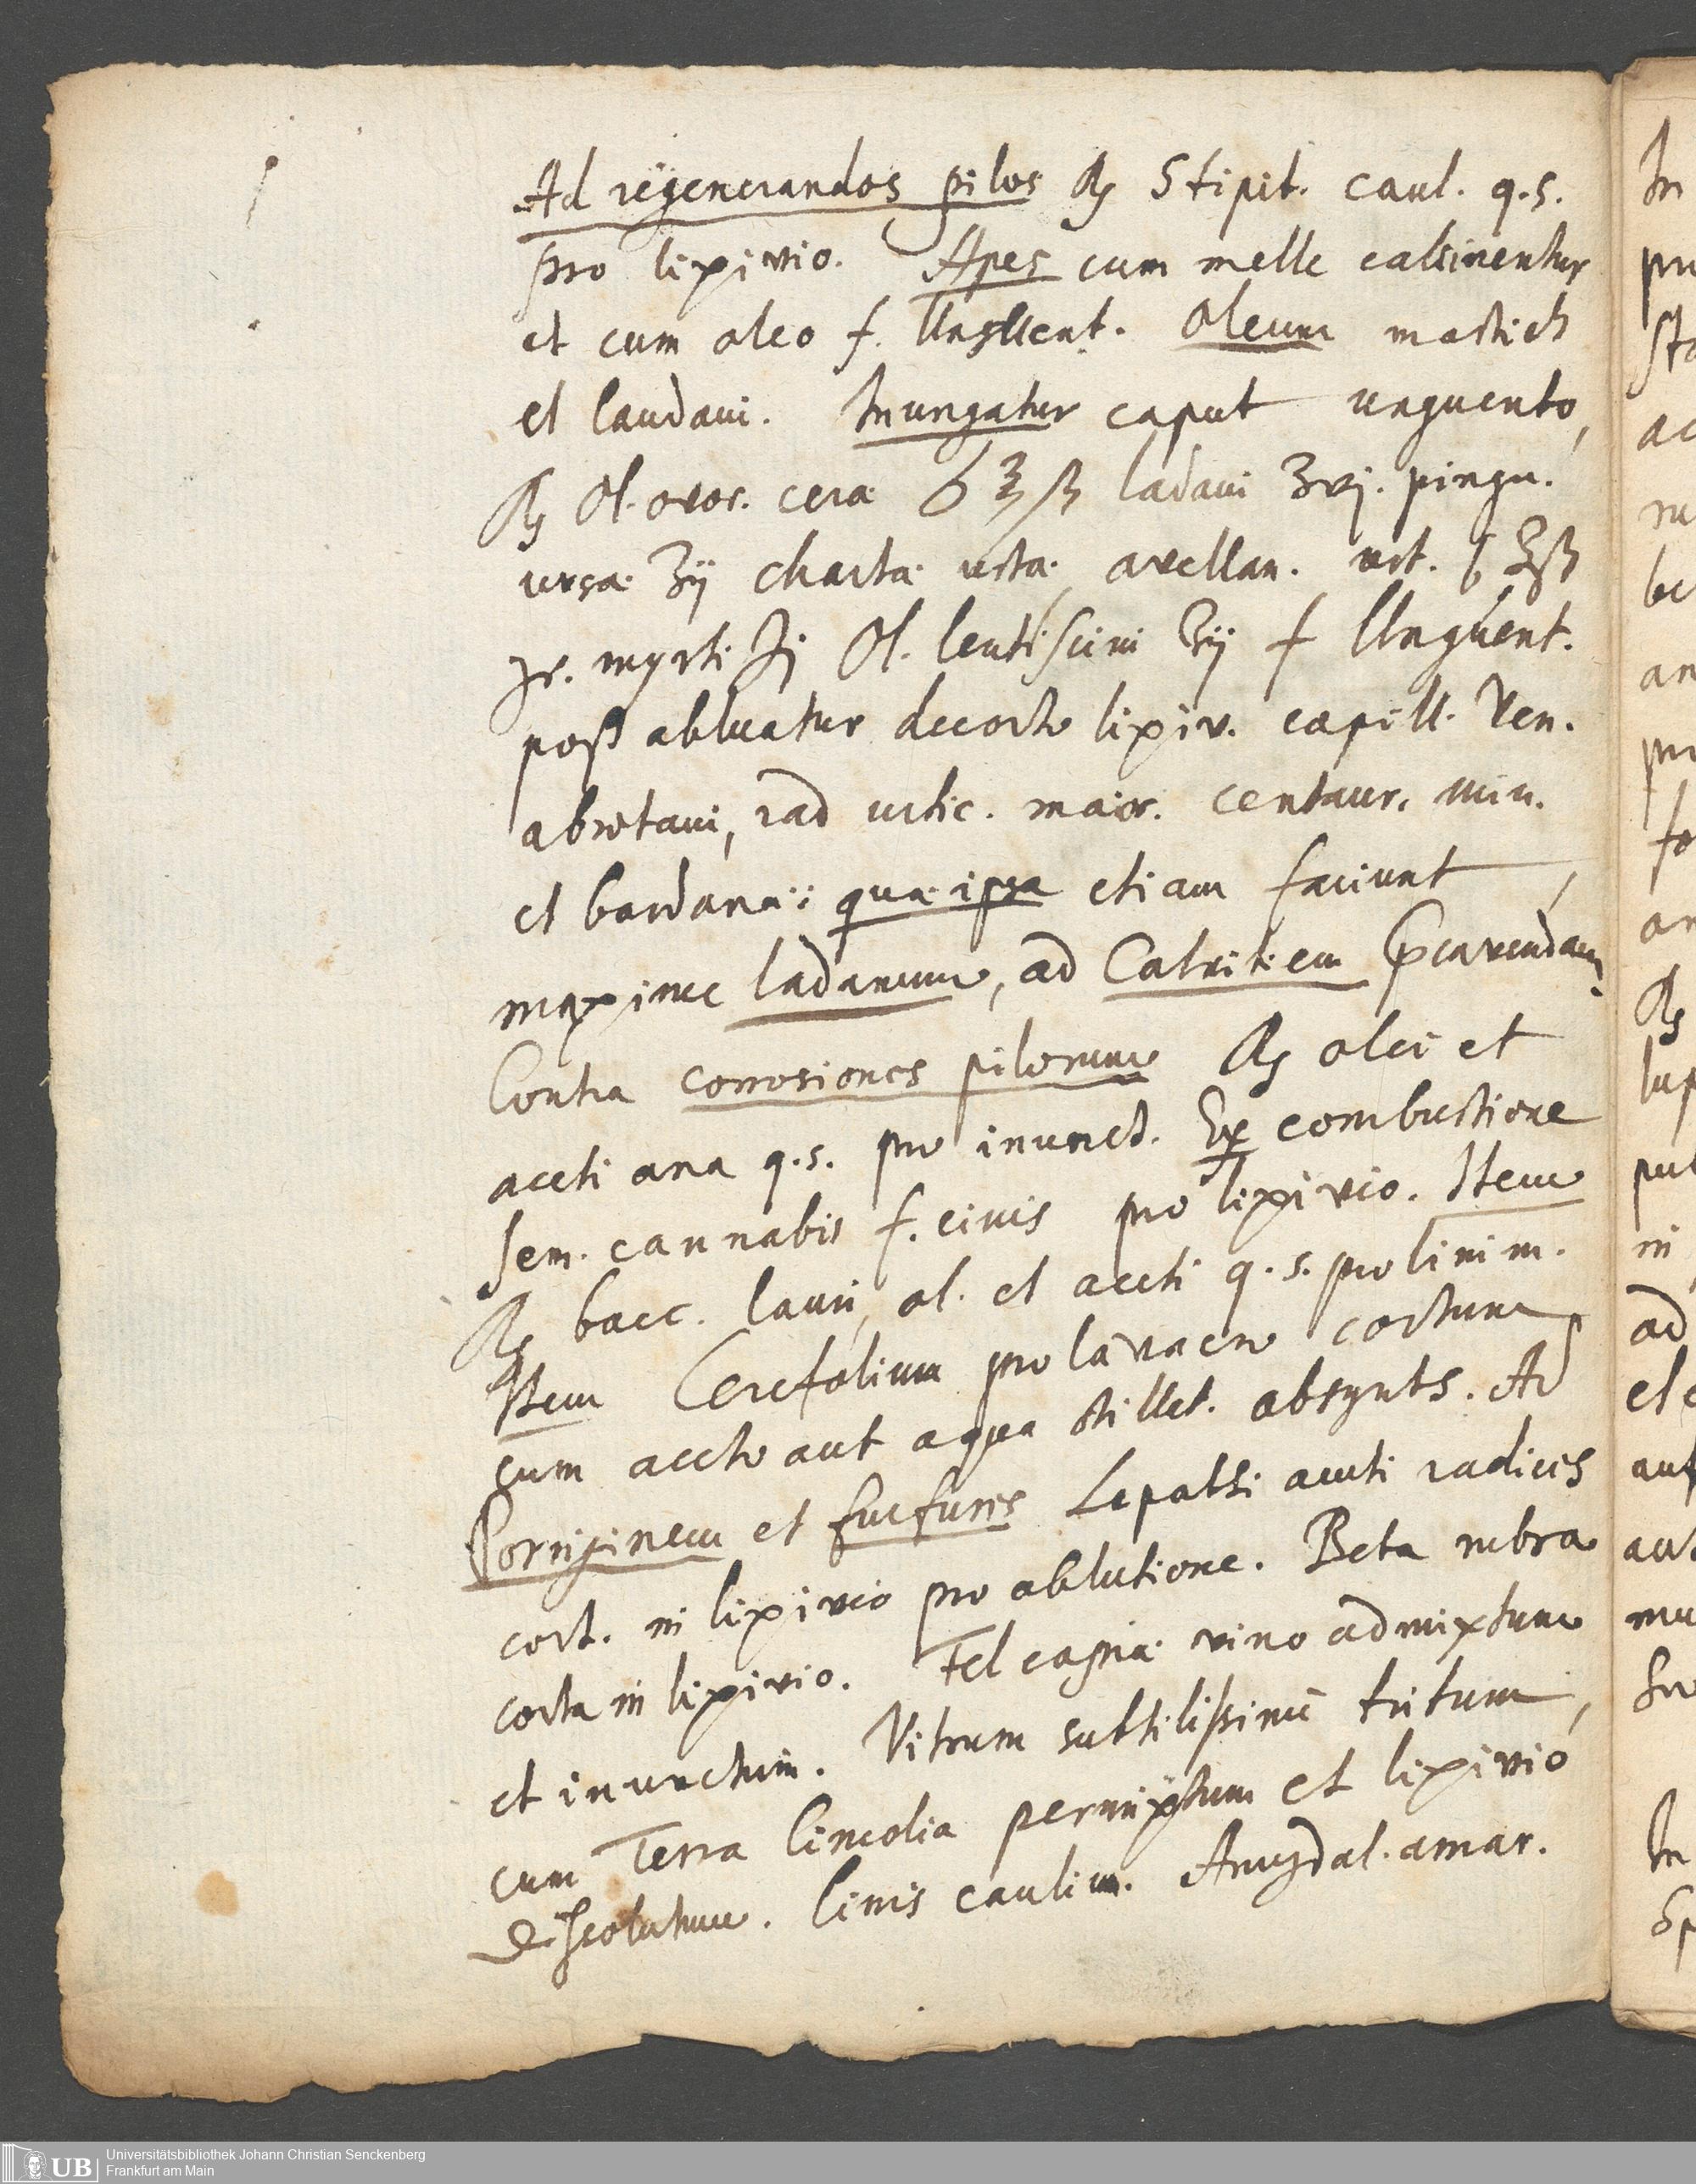 Ad regenerandos pilos ℞ Stipit. caul. q.s.
pro lixivio. Apes cum melle calcinentur
et cum oleo f. Unguent. Oleum mastich
et laudani. Inungatur caput unguento,
℞ Ol. ovor. cera ℥ß ladani ʒvj. pingu.
ursa ʒij charta usta avellan. ust. ʒß
myrti Ol. lentiscini ʒij f Unguent.
post abluatur decocto lixiv. capill. Ven.
abrotani, rad urtic. maior. centaur. min.
et bardana: qua ipsa etiam faciunt,
maxime ladanum, ad Calvitiem praecavendam.
Contra corrosiones pilorum ℞ olei et
aceti ana q.s. pro inunct. Ex combustione
sem. cannabis f. cinis pro lixivio. Item
℞ bacc. lauri, ol. et aceti q.s. pro linim.
Item Cerefolium pro lavacro coctum
cum aceto aut aqua stillat. absynth. Ad
Porriginem et furfures Lapathi acuti radices
coct. in lixivio pro ablutione. Beta rubra
cocta in lixivio. Fel capra vino admixtum
et inunctum. Vitrum subtilissime tritum,
cum Terra Cimolia permixtum et lixivio
dissolutum. Cinis caulium. Amygdal. amar.
UB Universitätsbibliothek Johann Christian Senckenberg
Frankfurt am Main